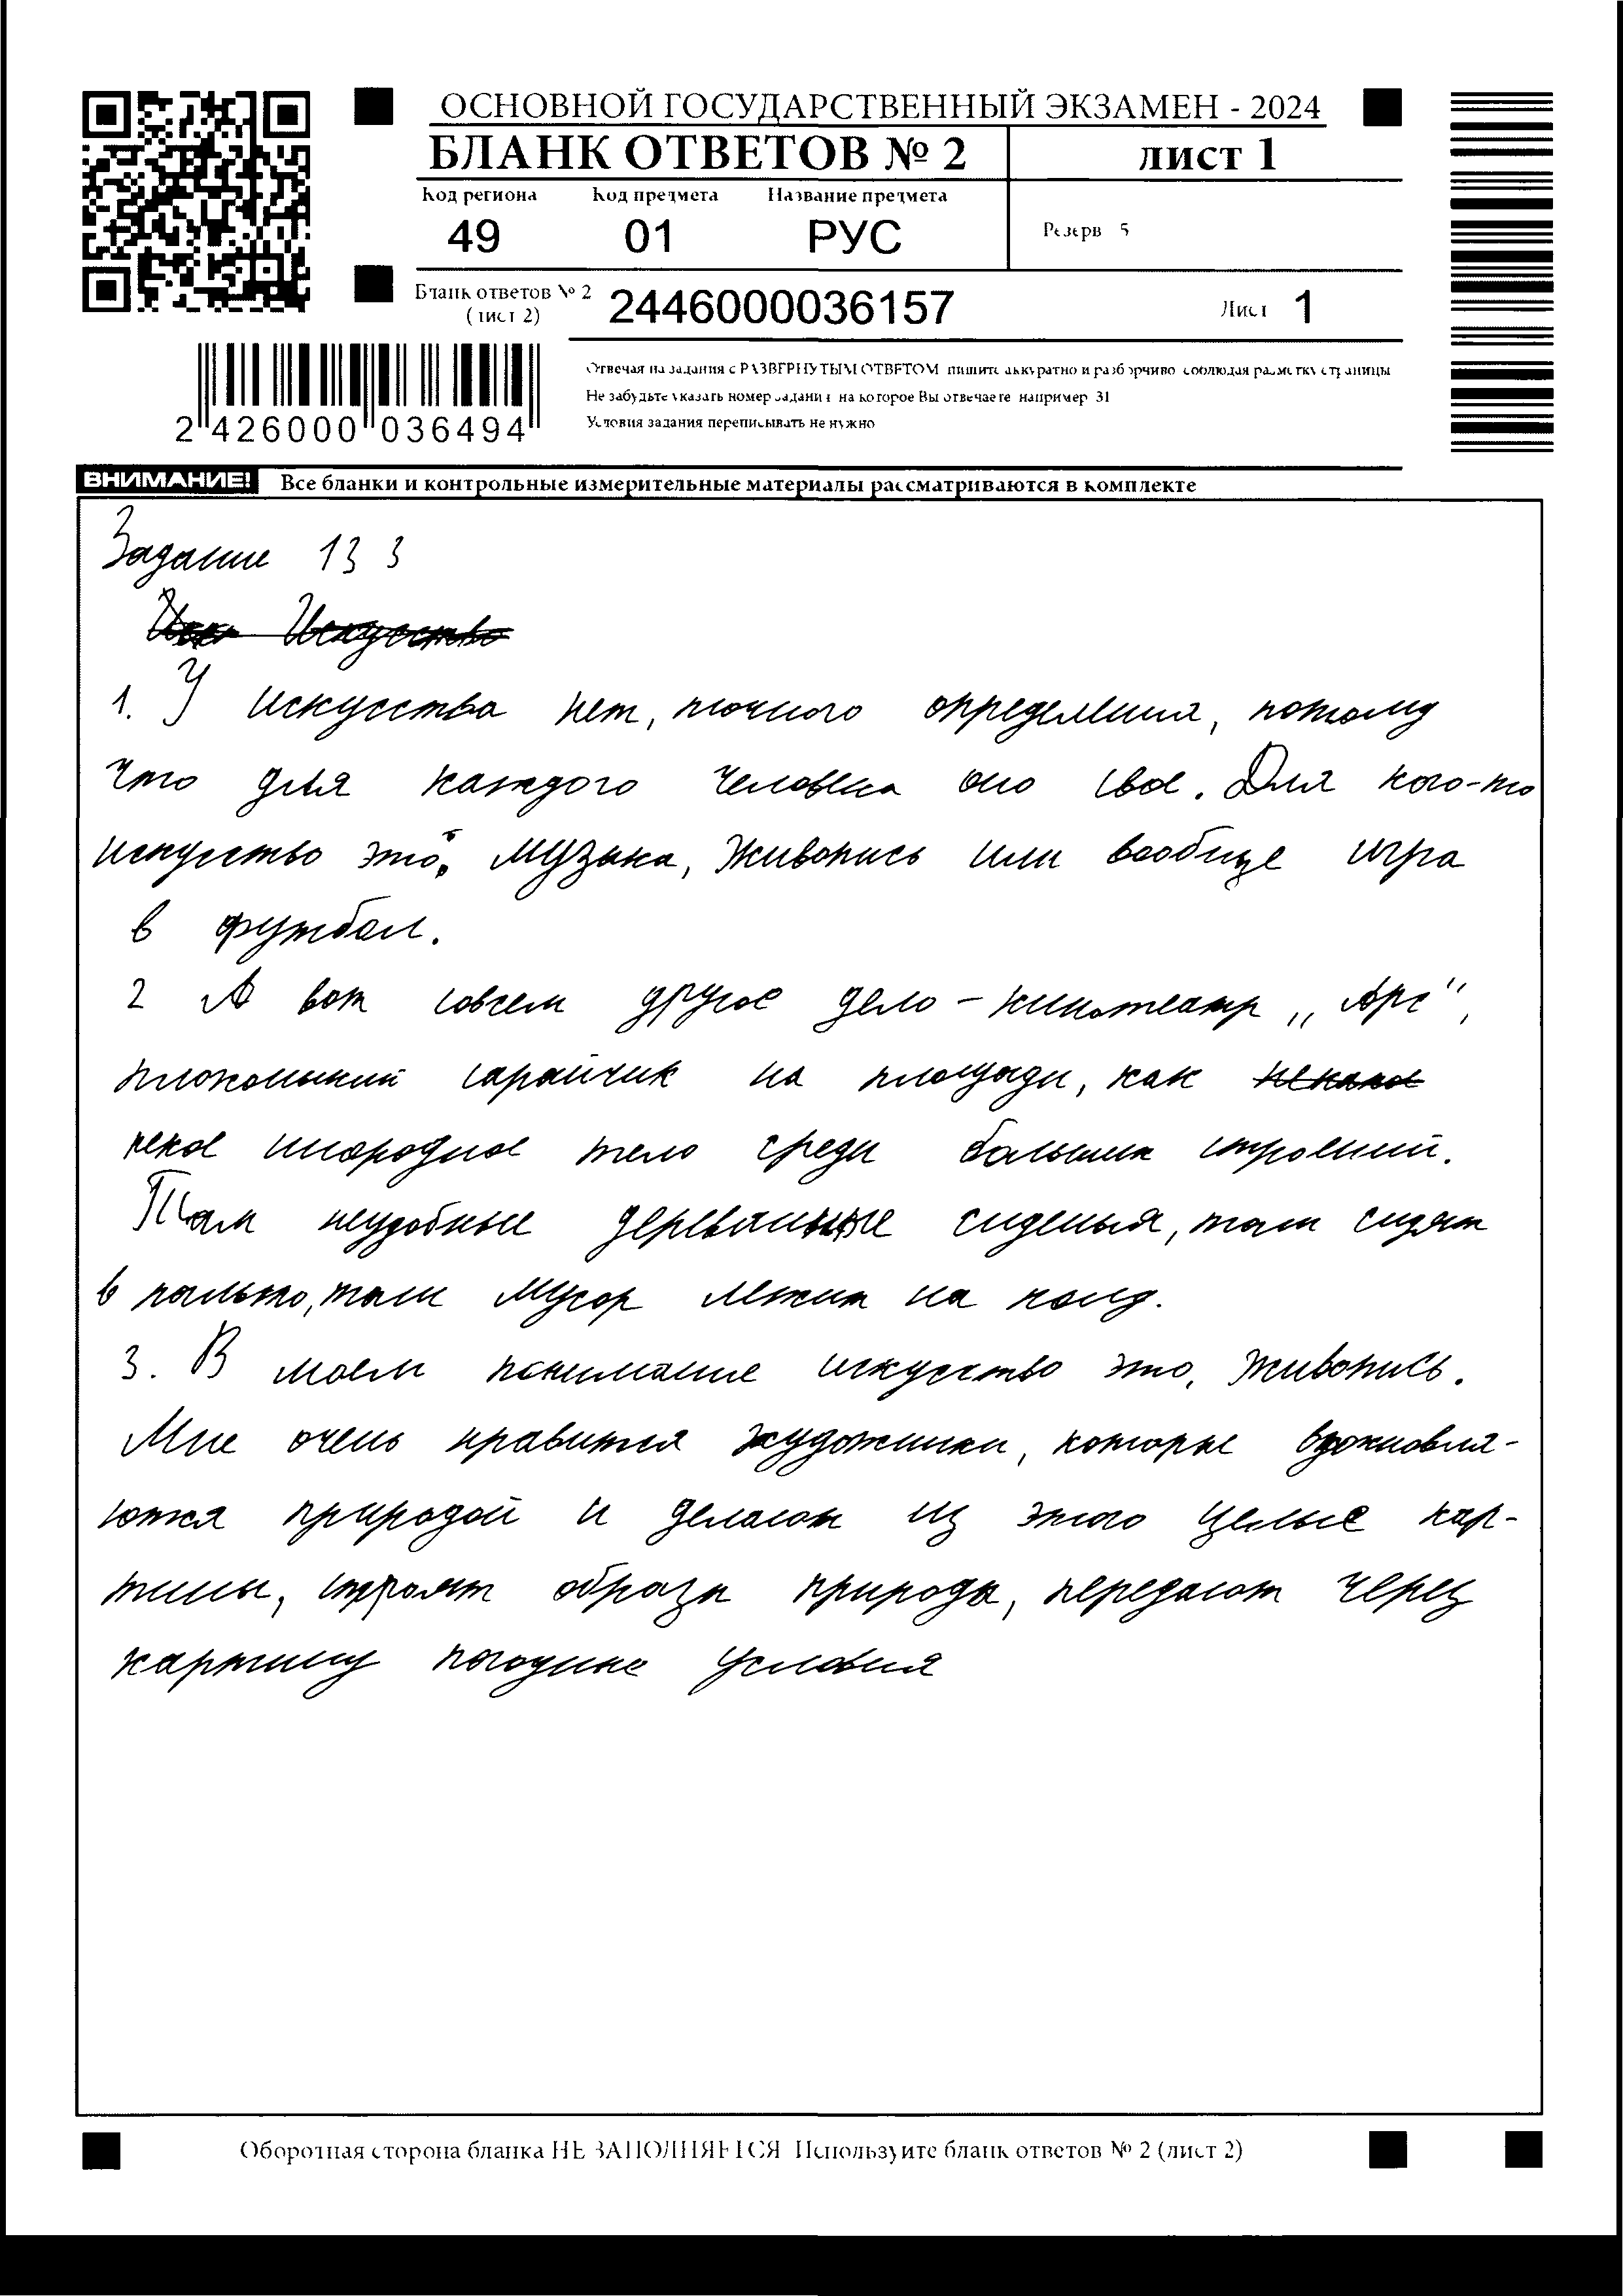 ОСНОВНОЙ ГОСУДАРСТВЕННЫЙ ЭКЗАМЕН - 2024
БЛАНК ОТВЕТОВ № 2
ЛИСТ 1
Код региона Код предмета Название предмета
49 01 РУС
Резерв 5
Бланк ответов № 2
(лист 2)
2446000036157
Лист 1
2 426000 036494
Отвечая на задания с РАЗВЕРНУТЫМ ОТВЕТОМ пишите аккуратно и разборчиво соблюдая разметку страницы
Не забудьте указать номер задания на которое Вы отвечаете например 31
Условия задания переписывать не нужно
ВНИМАНИЕ! Все бланки и контрольные измерительные материалы рассматриваются в комплекте
Задание 13 3
Искусство
1. У искусства нет, точного определения, потому
что для каждого человека оно свое. Для кого-то
искусство это, музыка, живопись или вообще игра
в футбол.
2 А вот совсем другое дело - кинотеатр „Арс",
плохонький сарайчик на площади, как некое
некое инородное тело среди больших строений.
Там неудобные деревянные сиденья, там сидят
в пальто, там мусор лежит на полу.
3. В моем понимание искусство это, живопись.
Мне очень нравится художники, которые вдохновля-
ются природой и делают из этого целые кар-
тины, строят образы природы, передают через
картину погодные условия
Оборотная сторона бланка НЕ ЗАПОЛНЯЕТСЯ Используйте бланк ответов № 2 (лист 2)